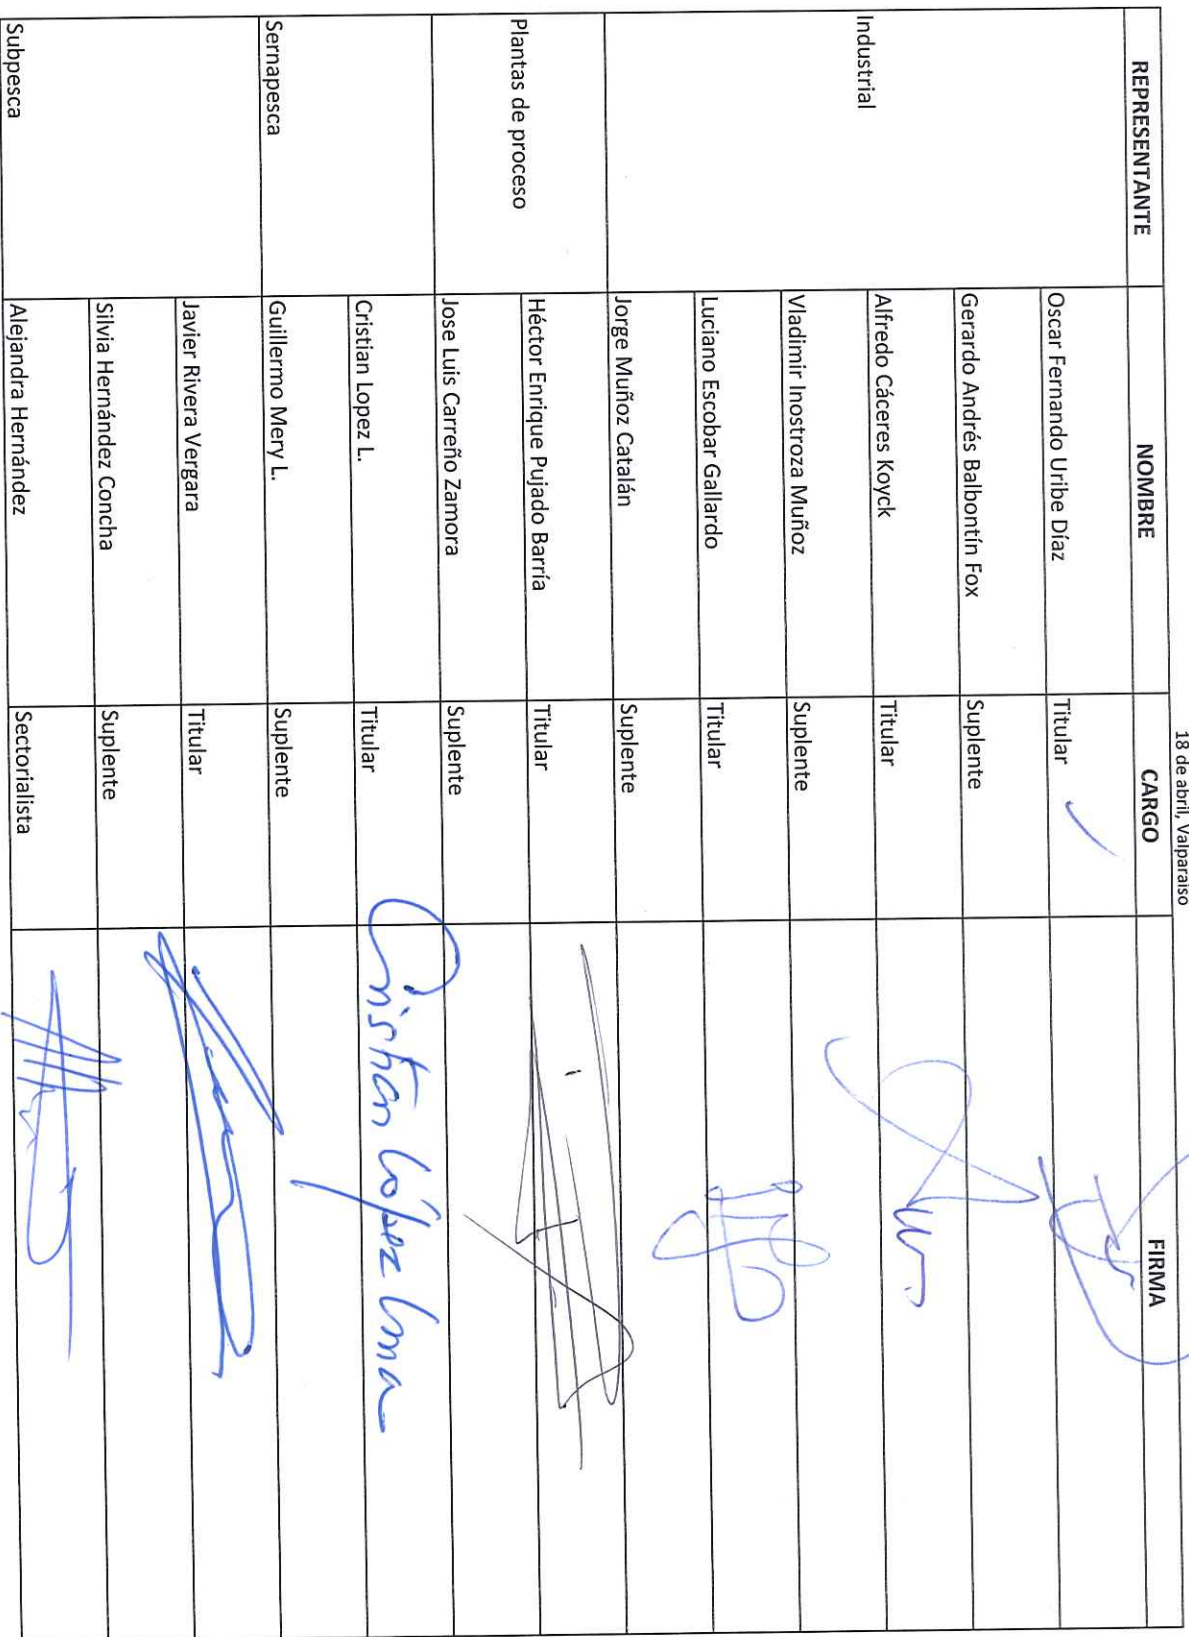 18 de abril, Valparaiso
REPRESENTANTE NOMBRE CARGO FIRMA
Industrial Oscar Fernando Uribe Díaz Titular
Gerardo Andrés Balbontín Fox Suplente
Alfredo Cáceres Koyck Titular
Vladimir Inostroza Muñoz Suplente
Luciano Escobar Gallardo Titular
Jorge Muñoz Catalán Suplente
Plantas de proceso Héctor Enrique Pujado Barría Titular
Jose Luis Carreño Zamora Suplente
Sernapesca Cristian Lopez L. Titular Cristian López Lma
Guillermo Mery L. Suplente
Subpesca Javier Rivera Vergara Titular
Silvia Hernández Concha Suplente
Alejandra Hernández Sectorialista